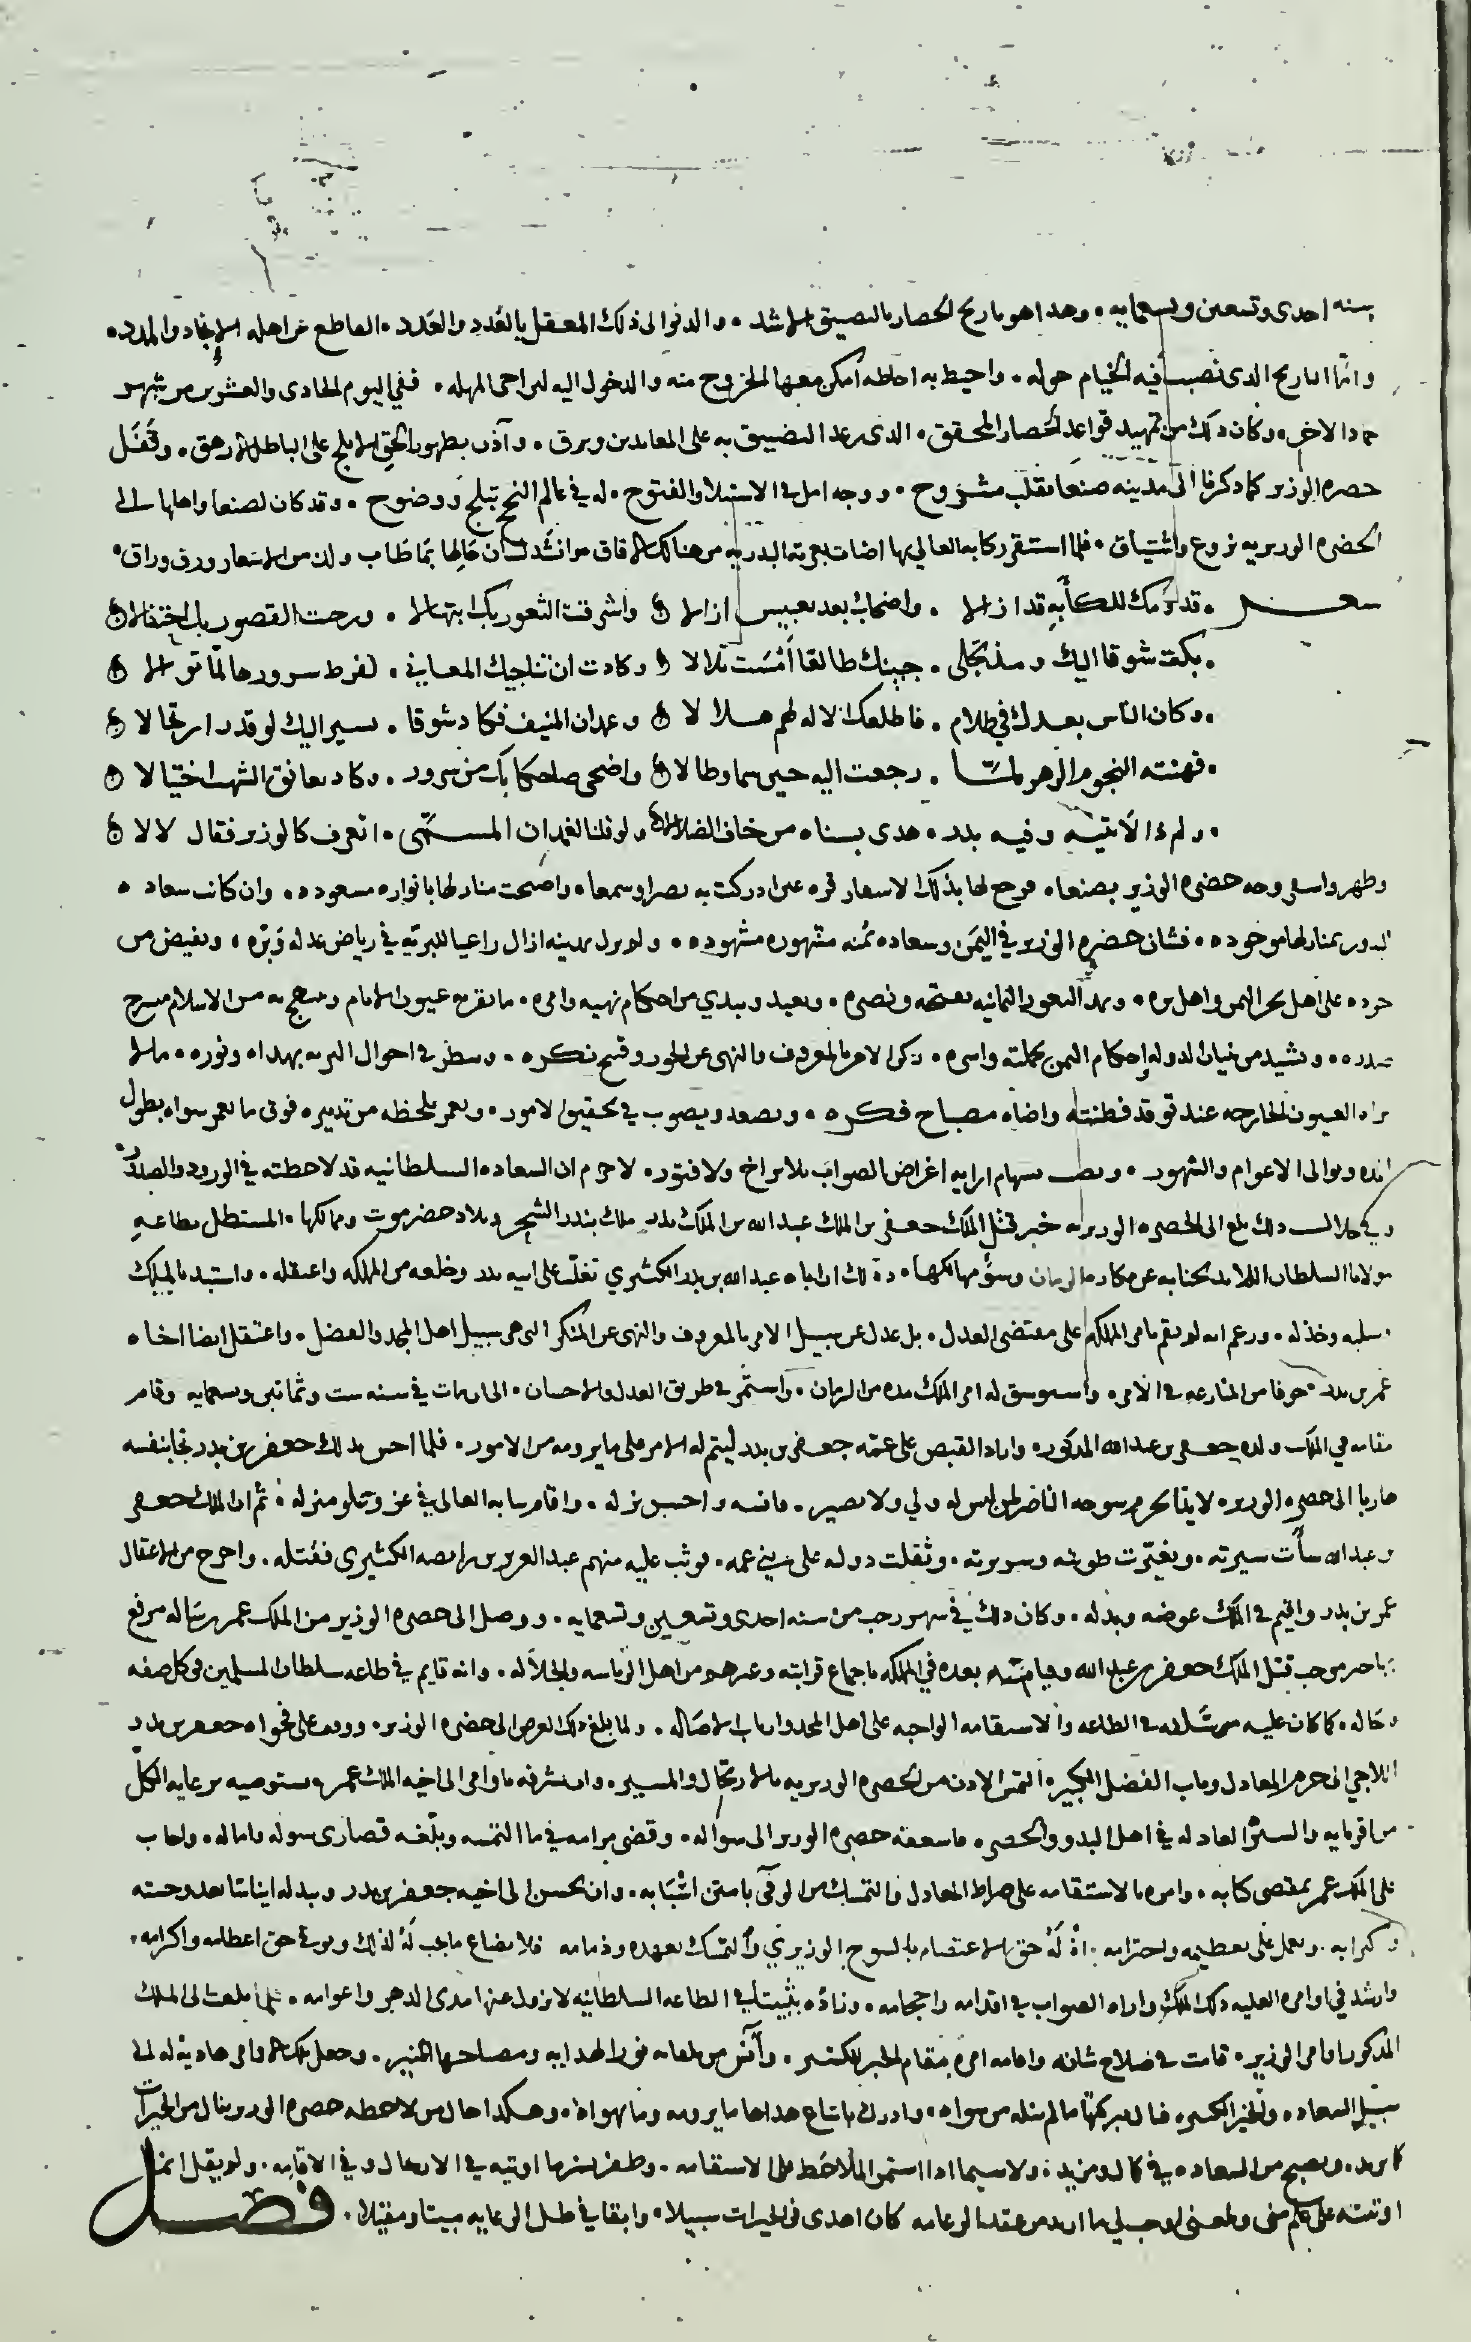 سنه احدى وتسعين وتسعمايه ٠ وهذا هو تاريخ الحصار بالتضييق الاشد ٠ والدنو الى ذلك المعقل بالعُدد والعَدد ٠ القاطع عن اهله الإنجاد والمدد ٠
وامّا التاريخ الذى نُصبت فيه الخيام حوله ٠ واحيط به احاطه امكن معها الخروج منه والدخول اليه لتراخى المهله ٠ ففي اليوم الحادى والعشرين من شهر
جمادا الاخرى ٠ وكان ذلك من تمهيد قواعد الحصار المحقق ٠ الذى رعد التضييق به على المعاندين وبرق ٠ وآذن بظهور الحق الابلج على الباطل الازهق ٠ وقفل
حضره الوزير كما ذكرنا الى مدينه صنعا بقلب مشروح ٠ ووجه امل فى الاستيلا والفتوح ٠ له في عالم النجح تبلّج ووضوح ٠ وقد كان لصنعا واهلها الى
الحضره الوزيريه نزوع واشتياق ٠ فلما استقر ركابه العالي بها اضات بغرته البدريه من هنالك الافاق وانشد لسان حالها بما طاب ولذ من الاشعار ورق وراق ٠
شعر ٠ قدومك للكآبهِ قد ازالا ٠ واضحك بعد تعبيس ازالا واشرقت الثغور بك ابتهالا ٠ ورحت القصور بك احتفالا
٠ بكت شوقا اليك ومذ تجلى ٠ جبينك طالعا أمْسَت تلالا وكادت ان تناجيك المعاني ٠ لفرط سرورها لمّا توالا
٠ وكان الناس بعدك في ظلام ٠ فاطلعك الاله لهم هلالا وغمدان المنيف فكاد شوقا ٠ يسير اليك لو قدر ارتحالا
٠ فهنته النجوم الزهر لمّا ٠ رجعت اليه حين سما وطالا واضحى ضاحكا بك من سرور ٠ وكاد يعانق الشهب اختيالا
٠ ولم ذا لا يتيه وفيه بدر ٠ هدى بسناه من خاف الضلالا ولو قلنا لغمدان المسمّى ٠ اتعرف كالوزير فقال لا لا
وظهر واسفر وجه حضره الوزير بصنعا ٠ فرجع لها بذلك الاسفار قره عين ادركت به بصرا وسمعا ٠ واضحت منازلها بانواره مسعوده ٠ وان كانت سعاده
البدور بمنازلها موجوده ٠ فشان حضره الوزير في اليمَن وسعاده يُمنه مشهوره مشهوده ٠ ولم يزل بمدينه ازال راعيا للبريّه في رياض عدله وبرّه ٠ ويفيض من
جوده على اهل بحر اليمن واهل بره ٠ ويمد الثغور اليمانيه بفتحه ونصره ٠ ويعيد ويبدي من احكام نهيه وامره ٠ ما تقر به عيون الانام ويبتهج به من الاسلام منشرح
صدره ٠ ويشيد من بنيان الدوله احكام اليمن بجملته واسره ٠ ذكر الامر بالمعروف والنهى عن الجور وقبيح نكره ٠ وينظر في احوال البريه بهداه ونوره ٠ ما لا
تراه العيون الخارجه عند توقد فطنته واضاه مصباح فكره ٠ ويصعد ويصوب في تحقيق الامور ٠ ويعمر بلحظه من تدبيره فوق ما يعمر سواه بطول
امده وتوالى الاعوام والشهور ٠ ويصيب بسهام ارايه اغراض الصواب بلا تراخ ولا فتور ٠ لا جرم ان السعاده السلطانيه قد لاحظته في الورود والصدور ٠
وفي خلال ذلك بلغ الى الحضره الوزيريه خبر قتل الملك جعفر بن الملك عبدالله بن الملك بدر ملك بندر الشحر وبلاد حضرموت وممالكها ٠ المستظل بطاعه
مولانا السلطان اللايذ بجنابه عن مكاره الزمان وسؤ مهالكها ٠ وذلك ان اباه عبدالله بن بدر الكثيري تغلب على ابيه بدر وخلعه من المملكه واعتقله ٠ واستبد بالملك
وسلبه وخذله ٠ وزعم انه لم يقم بامر المملكه على مقتضى العدل ٠ بل عدل عن سبيل الامر بالمعروف والنهى عن المنكر التي هى سبيل اهل المجد والفضل ٠ واعتقل ايضا اخاه
عمر بن بدر خوفا من المنازعه في الامر ٠ واستوسق له امر الملك مده من الزمان ٠ واستمر في طريق العدل والاحسان ٠ الى ان مات في سنه ست وثمانين وتسعمايه وقام
مقامه في الملك ولده جعفر بن عبدالله المذكور ٠ واراد القبض على عمّه جعفر بن بدر ليتم له الامر على ما يرومه من الامور ٠ فلما احس بذلك جعفر بن بدر نجا بنفسه
هاربا الى حضره الوزير ٠ لايذا بحرم سوحه الناضر لمن ليس له ولي ولا نصير ٠ فانسه واحسن نزله ٠ واقام ببابه العالي في عز وعلو منزله ٠ ثم ان الملك جعفر
بن عبدالله سأت سيرته ٠ وتغيّرت طويته وسريرته ٠ وثقلت دوله على بني عمه ٠ فوثب عليه منهم عبدالعزيز بن الكثيري فقتله ٠ واخرج من الاعتقال
عمر بن بدر واقيم في الملك عوضه وبدله ٠ وكان ذلك في شهر رجب من سنه احدى وتسعين وتسعمايه ٠ ووصل الى حضره الوزير من الملك عمر رساله مرفع
موجب قتل الملك جعفر بن عبدالله وقيامه بعده في المملكه باجماع قرابته وغيرهم من اهل الرياسه والجلاله ٠ وانه قايم في طاعه سلطان المسلمين في كل صفه
وحاله ٠ كما كان عليه من سَلفه في الطاعه والاستقامه الواجبه على اهل المجد وارباب الاصاله ٠ ولما بلغ ذلك العرض الى حضره الوزير ٠ ووقف على فحواه جعفر بن بدر
اللاجي الى حرم المعادل وباب الفضل الكبير ٠ التمس الاذن من الحضره الوزيريه بالارتحال والمسير ٠ وان يشرفه باوامر الى اخيه الملك عمر يستوصيه برعايه الكل
من اقربايه والسيره العادله في اهل البدو والحضر ٠ فاسعفه حضره الوزير الى سواله ٠ وقضى مرامه في ما التمسه وبلّغه قصارى سوله واماله ٠ واجاب
على الملك عمر بمقتضى كتابه ٠ وامره بالاستقامه على صراط المعادل والتمسك من الوفى بامتن اسبابه ٠ وان يحسن الى اخيه جعفر بن بدر ويبدله ايناسا بعد وحشته
٠ ويعمل على تعظيمه واحترامه ٠ اذ لَهُ حق الاعتصام بالسوح الوزيري والتمسك بعهده وذمامه فلا يضاع ما يجب لهُ لذلك ويوفي حق اعظامه واكرامه ٠
وارشد في اوامره العليه ذلك الملك واراه الصواب في اقدامه واحجامه ٠ وزاده تثبيتا في الطاعه السلطانيه لا يزول عنها مدى الدهر واعوامه ٠ فلما بلغت الى الملك
المذكور اوامر الوزير ٠ قامت في صلاح شانه واقامه امره مقام الخبر الكثير ٠ وأنس من نور الهدايه ومصباحها المنير ٠ وجعل تلك الاوامر هاديه له الى
سبيل السعاده والخير الكثير فنال ببركتها ما لم ينله من سواه ٠ وادرك باتباع هداها ما يرومه وما يهواه ٠ وهكذا حال من لاحظه حضره الوزير ينال من الخيرات
ما يريد ٠ ويصبح من السعاده في كمال ومزيد ٠ ولا سيما اذا استمر الملاحَظ على الاستقامه ٠ وظفر بنها اوتيه في الارتحال وفي الاقامه ٠ ولم يقل انما
اوتيته على علم كان اهدى في الخيرات سبيلا ٠ وابقا في ظل الرعايه مبيتا ومقيلا ٠ فصل